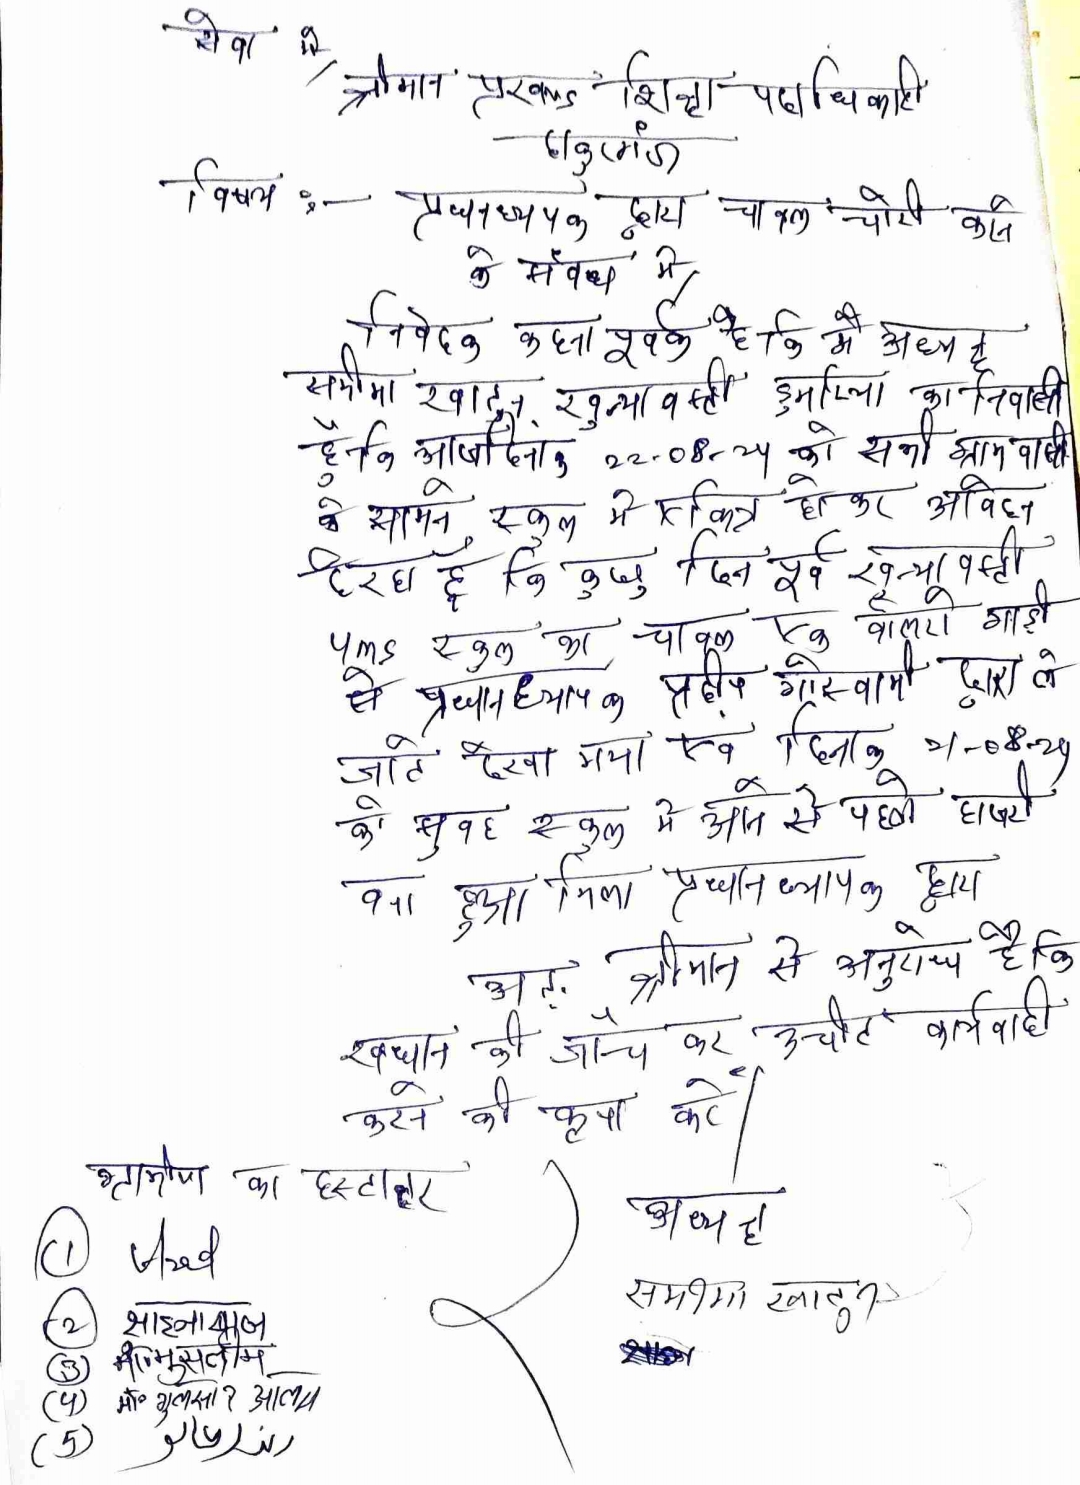 सेवा में,
श्रीमान प्रखण्ड शिक्षा पदाधिकारी
ठाकुरगंज
विषय :- प्रधानध्यापक द्वारा चावल चोरी करने
के संवध में,
निवेदक कहना पूर्वक है कि मैं अध्यक्ष
समीमा खातुन, खुन्या वस्ती डुमरिया का निवासी
हूँ कि आज दिनांक 22-08-24 को सभी ग्रामवासी
के सामने, स्कुल में एकत्रि होकर आवेदन
दे रहा हूँ कि कुछ दिन पूर्व खुन्या वस्ती
स्कुल का चावल एक वोलेरो गाड़ी
से प्रधानध्यापक प्रदीप गोस्वामी द्वारा ले
जाते देखा गया एवं दिनांक 21-08-24
को सुवह स्कुल में आने से पहले हाजरी
वना हुआ मिला प्रधानध्यापक द्वारा
अतः श्रीमान से अनुरोध है कि
की जाँच कर उचीत कार्यवाही
करने की कृपा करें
ग्रामीण का हस्टाक्षर
अध्यक्ष
समीमा खातुन
(1)
(2)
(3) मो० मुसलीम
(4) मो० आलम
(5)